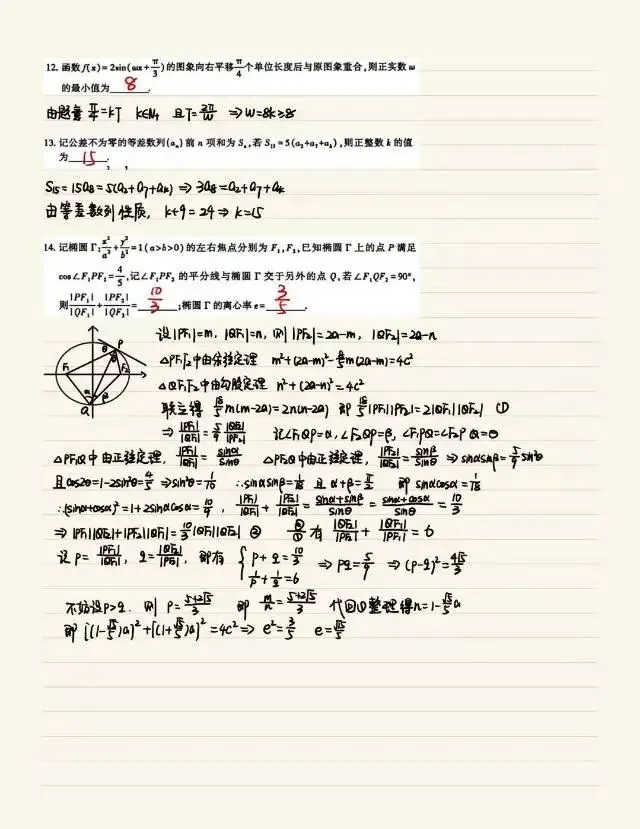 12. 函数 f(x)=2sin(ωx+π/3)的图象向右平移π/4个单位长度后与原图象重合,则正实数 ω
的最小值为 8 .
由题意 π/4=kT k∈N+ 且T=2π/ω ⇒W=8k≥8
13. 记公差不为零的等差数列{aₙ}前 n 项和为 Sₙ,若 S₁₅=5(a₂+a₇+aₖ),则正整数 k 的值
为 15 .
S₁₅=15a₈=5(a₂+a₇+aₖ)⇒3a₈=a₂+a₇+aₖ
由等差数列性质, k+9=24⇒k=15
14. 记椭圆 Γ:x²/a²+y²/b²=1(a>b>0)的左右焦点分别为 F₁,F₂,已知椭圆 Γ 上的点 P 满足
cos∠F₁PF₂=4/5,记∠F₁PF₂ 的平分线与椭圆 Γ 交于另外的点 Q,若∠F₁QF₂=90°,
则|PF₁|/|QF₁|+|PF₂|/|QF₂|= 10/3 ;椭圆 Γ 的离心率 e= 3/5 .
设|PF₁|=m, |QF₁|=n, 则|PF₂|=2a-m, |QF₂|=2a-n
△PF₁F₂中由余弦定理 m²+(2a-m)²-8/5m(2a-m)=4c²
△QF₁F₂中由勾股定理 n²+(2a-n)²=4c²
联立得 18/5m(m-2a)=2n(n-2a) 即 18/5|PF₁||PF₂|=2|QF₁||QF₂| ①
⇒|PF₁|/|QF₁|=5/9|QF₂|/|PF₂| 记∠F₁QP=α,∠F₂QP=β, ∠F₁PQ=∠F₂PQ=θ
△PF₁Q中由正弦定理, |PF₁|/|QF₁|=sinα/sinθ △PF₂Q中由正弦定理, |PF₂|/|QF₂|=sinβ/sinθ ⇒sinαsinβ=5/9sin²θ
且cos2θ=1-2sin²θ=4/5⇒sin²θ=1/10 ∴sinαsinβ=1/18 且α+β=π/2 即sinαcosα=1/18
∴(sinα+cosα)²=1+2sinαcosα=10/9, |PF₁|/|QF₁|+|PF₂|/|QF₂|=(sinα+sinβ)/sinθ=(sinα+cosα)/sinθ=10/3
⇒|PF₁||QF₂|+|PF₂||QF₁|=10/3|QF₁||QF₂| ② ②/① 有 |QF₂|/|PF₂|+|QF₁|/|PF₁|=6
设 p=|PF₁|/|QF₁|, q=|PF₂|/|QF₂|, 即有 { p+q=10/3 1/p+1/q=6 ⇒pq=5/9 ⇒(p-q)²=4√5/3
不妨设p>q. 则 p=(5+2√5)/3 即 m/n=(5+2√5)/3 代回①整理得n=1-√5/5a
即[(1-√5/5)a]²+[(1+√5/5)a]²=4c²⇒e²=3/5 e=√15/5
F₁
F₂
P
Q
θ
θ
α
β